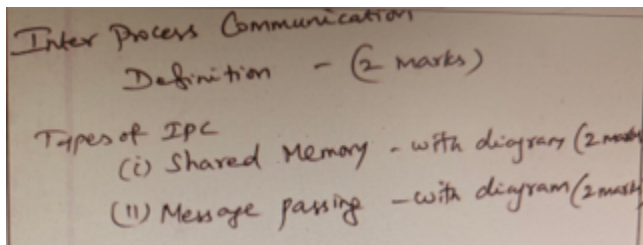 Inter Process Communication
Definition - (2 marks)
Types of IPC
(i) Shared Memory - with diagram (2 marks
(11) Message passing - with diagram (2 mark